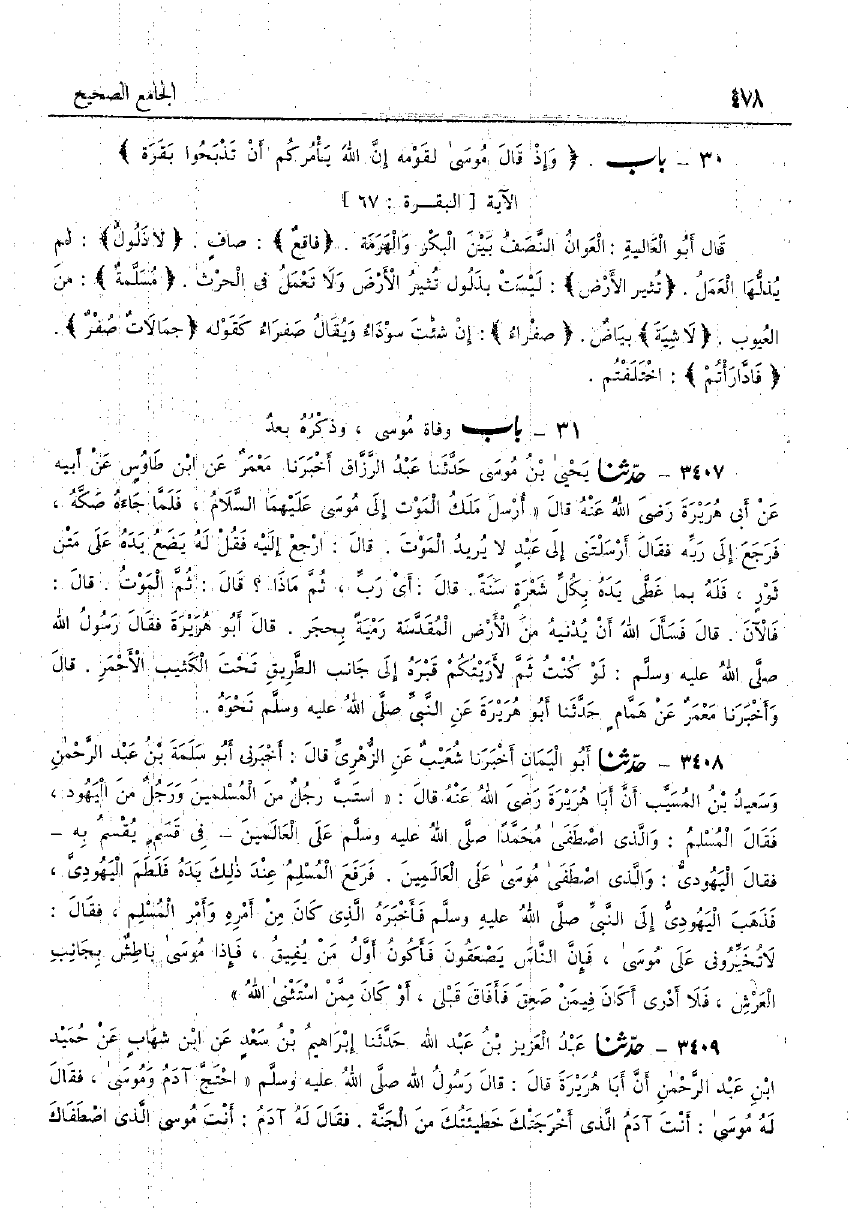 ٤٧٨ الجامع الصحيح
٣٠ – باب . ﴿ وَإِذْ قَالَ مُوسَىٰ لِقَوْمِهِ إِنَّ اللهَ يَأْمُرُكُمْ أَنْ تَذْبَحُوا بَقَرَةً ﴾
الآية [ البقــرة : ٦٧ ]
قَال أبُو الْعَالِيةِ : الْعَوانُ النَّصَفُ بَيْنَ الْبَكْرِ وَالْهَرِمَةِ . ﴿ فاقِعٌ ﴾ : صافٍ . ﴿ لَا ذَلُولٌ ﴾ : لم
يُذِلَّهَا الْعَمَلُ . ﴿ تُثِير الأَرْضَ ﴾ : لَيْسَتْ بِذَلُولٍ تُثِيرُ الْأَرْضَ وَلَا تَعْمَلُ فى الْحرْثِ . ﴿ مُسَلَّمةٌ ﴾ : مِنَ
الْعُيوبِ . ﴿ لَا شِيَةَ ﴾ بيَاضٌ . ﴿ صفْراءُ ﴾ : إنْ شِئْتَ سوْدَاءُ وَيُقَالُ صَفراءُ كَقَوْلِه ﴿ جِمَالَاتٌ صُفْرٌ ﴾ .
﴿ فَادَّارَأْتُمْ ﴾ : اخْتَلَفْتُم .
٣١ – باب وفَاةِ مُوسى ، وذِكْرُهُ بعدُ
٣٤٠٧ – حدّثنا يَحْيىٰ بْنُ مُوسَى حَدَّثنَا عَبْدُ الرَّزَّاقِ أَخْبَرَنا مَعْمَرٌ عَنِ ابْنِ طَاوُسٍ عَنْ أَبِيهِ
عَنْ أَبى هُرَيْرَةَ رَضِىَ اللهُ عَنْهُ قالَ « أُرْسِلَ مَلَكُ الْمَوْتِ إِلَى مُوسَى عَلَيْهِمَا السَّلَامُ ، فَلَمَّا جَاءَهُ صَكَّهُ ،
فَرَجَعَ إِلَى رَبِّهِ فقالَ أَرْسَلْتَنِى إلَى عَبْدٍ لَا يُرِيدُ الْمَوْتَ . قالَ : ارْجِعْ إلَيْهِ فَقُلْ لَهُ يَضَعُ يَدَهُ عَلَى مَتْنِ
ثَوْرٍ ، فَلَهُ بما غَطَّى يَدَهُ بِكُلِّ شَعْرَةٍ سَنَةٌ . قالَ : أَىْ رَبِّ ، ثُمَّ مَاذَا ؟ قَالَ : ثُمَّ الْمَوْتُ . قالَ :
فَالْآنَ . قالَ فَسَأَلَ اللهَ أَنْ يُدْنِيَهُ مِنَ الْأَرْضِ الْمُقَدَّسَةِ رَمْيَةً بِحجَرٍ . قالَ أَبُو هُرَيْرَةَ فقَالَ رَسُولُ اللهِ
صلَّى اللهُ عليه وسلَّم : لَوْ كُنْتُ ثَمَّ لَأَرَيْتُكُمْ قَبْرَهُ إِلَى جَانبِ الطَّرِيقِ تَحْتَ الْكَثِيبِ الْأَحْمَرِ . قالَ
وَأَخْبَرَنا مَعْمَرٌ عَنْ هَمَّامٍ حَدَّثَنا أَبُو هُرَيْرَةَ عَنِ النَّبِىِّ صلَّى اللهُ عليه وسلَّم نَحْوَهُ .
٣٤٠٨ – حدّثنا أَبُو الْيَمَانِ أَخْبَرَنا شُعَيْبٌ عَنِ الزُّهْرِىِّ قالَ : أَخْبَرنِى أَبُو سَلَمَةَ بْنُ عَبدِ الرَّحْمٰنِ
وَسَعِيدُ بْنُ الْمُسَيَّبِ أَنَّ أَبَا هُرَيْرَةَ رَضِىَ اللهُ عَنْهُ قالَ : « استَبَّ رجُلٌ مِنَ الْمُسْلِمِينَ وَرَجُلٌ مِنَ الْيَهُودِ ،
فَقَالَ الْمُسْلِمُ : وَالَّذِى اصْطَفَىٰ مُحَمَّدًا صلَّى اللهُ عليه وسلَّم عَلَى الْعَالَمِينَ – فِى قَسَمٍ يُقْسِمُ بِهِ –
فقالَ الْيَهُودِىُّ : وَالَّذى اصْطَفَىٰ مُوسَىٰ عَلَى الْعَالَمِينَ . فَرَفَعَ الْمُسْلِمُ عِنْدَ ذٰلِكَ يَدَهُ فَلَطَمَ الْيَهُودِىَّ ،
فَذَهَبَ الْيَهُودِىُّ إِلَى النَّبِىِّ صلَّى اللهُ عليهِ وسلَّم فَأَخْبَرَهُ الَّذِى كَانَ مِنْ أَمْرِهِ وَأَمْرِ الْمُسْلِمِ ، فقَالَ :
لَاتُخَيِّرُونى عَلَى مُوسَىٰ ، فَإِنَّ النَّاسَ يَصْعَقُونَ فَأَكُونُ أَوَّلَ مَنْ يُفِيقُ ، فَإِذَا مُوسَىٰ باطِشٌ بِجَانِبِ
الْعَرْشِ ، فَلَا أَدْرِى أَكَانَ فِيمَنْ صَعِقَ فَأَفَاقَ قَبْلِى ، أَوْ كَانَ مِمَّنْ اسْتَثْنىٰ اللهُ »
٣٤٠٩ – حدّثنا عَبْدُ الْعَزِيزِ بْنُ عَبْدِ اللهِ حَدَّثَنا إِبْرَاهِيمُ بْنُ سَعْدٍ عَنِ ابْنِ شِهَابٍ عَنْ حُمَيْدِ
ابْنِ عَبْدِ الرَّحْمٰنِ أَنَّ أَبَا هُرَيْرَةَ قَالَ : قالَ رَسُولُ اللهِ صلَّى اللهُ عليه وسلَّم « احْتَجَّ آدَمُ وَمُوسَىٰ ، فقَالَ
لَهُ مُوسَىٰ : أَنْتَ آدَمُ الَّذِى أَخْرَجَتْكَ خَطِيئَتُكَ مِنَ الْجَنَّةِ . فقَالَ لَهُ آدَمُ : أَنْتَ مُوسى الَّذِى اصْطَفَاكَ